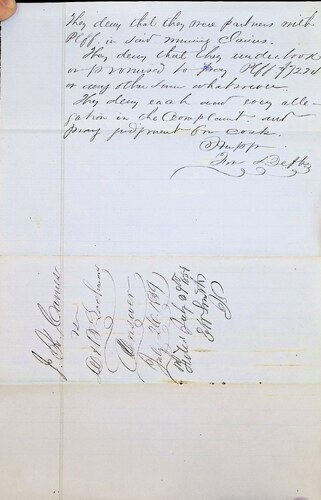 They deny that they were partners with
Plff in said mining Claims.
They deny that they undertook
or promised to pay Plff $
or any other sum whatsoever.
They deny each and every alle-
gation in the Complaint and
pray judgment for costs.
For Defts
J
vs
Answer
July 26 1859
Filed July
Smith